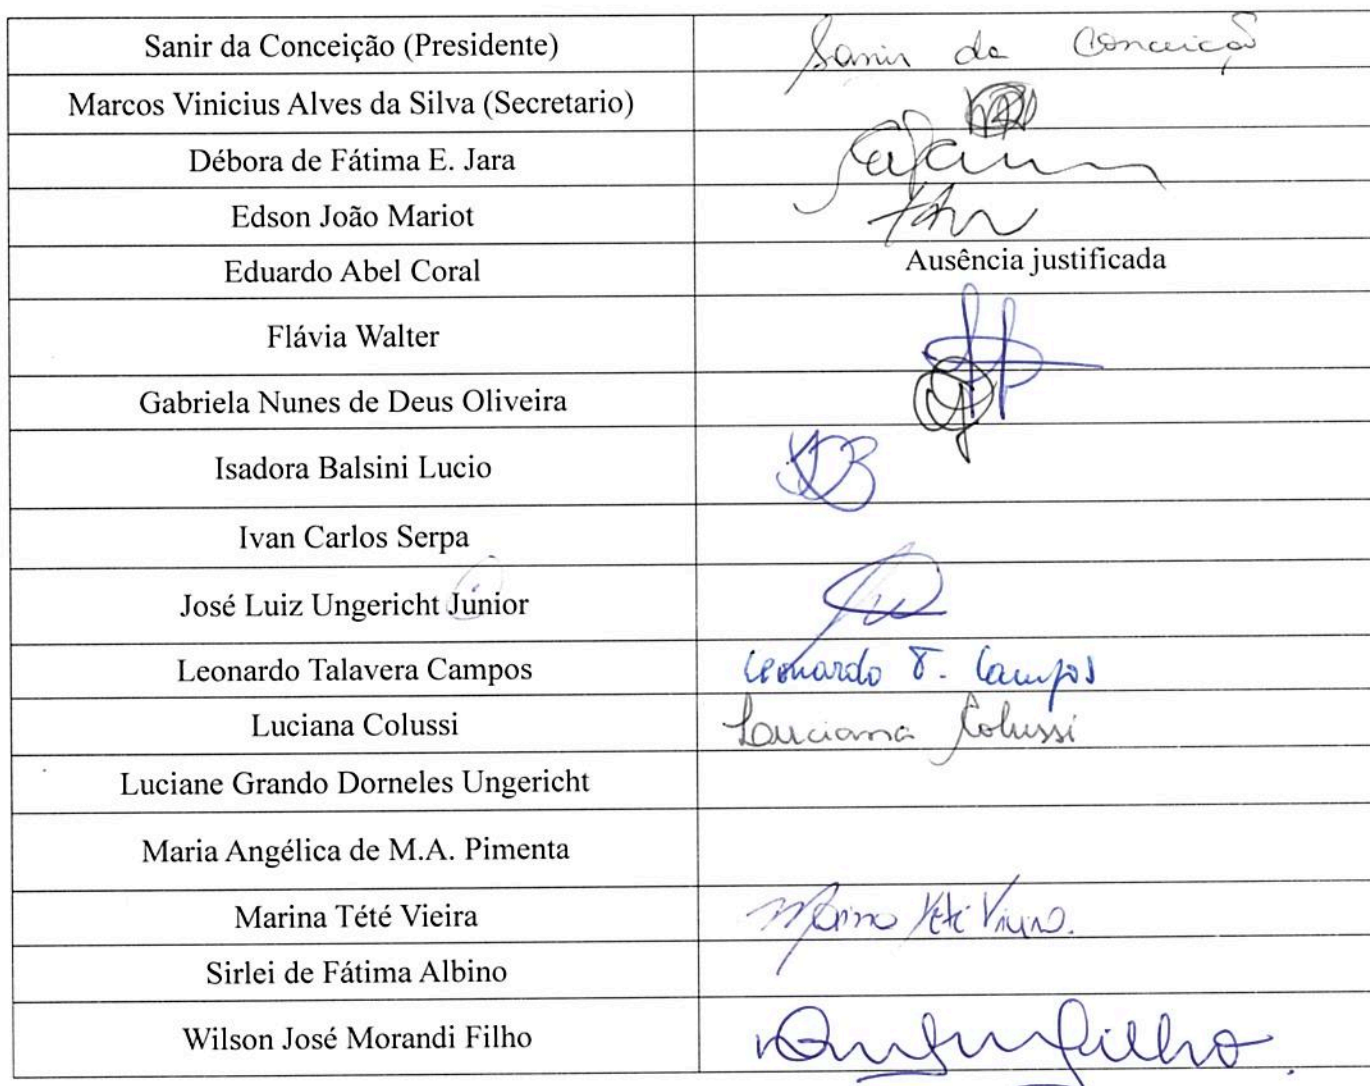 Sanir da Conceição (Presidente) Sanir da Conceição
Marcos Vinicius Alves da Silva (Secretario)
Débora de Fátima E. Jara
Edson João Mariot
Eduardo Abel Coral Ausência justificada
Flávia Walter
Gabriela Nunes de Deus Oliveira
Isadora Balsini Lucio
Ivan Carlos Serpa
José Luiz Ungericht Júnior
Leonardo Talavera Campos Leonardo T. Campos
Luciana Colussi Luciana Colussi
Luciane Grando Dorneles Ungericht
Maria Angélica de M.A. Pimenta
Marina Tété Vieira Marina Tété Vieira.
Sirlei de Fátima Albino
Wilson José Morandi Filho Filho